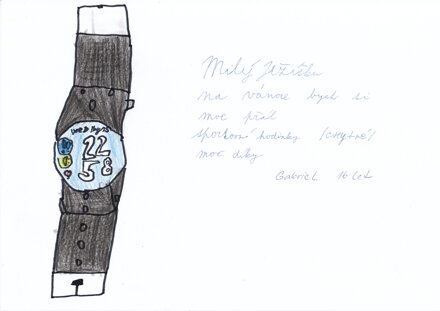 22
58
Milý Ježíšku
na vánoce bych si
moc přál
sportovní hodinky (chytré)
moc díky
Gabriel 16 let